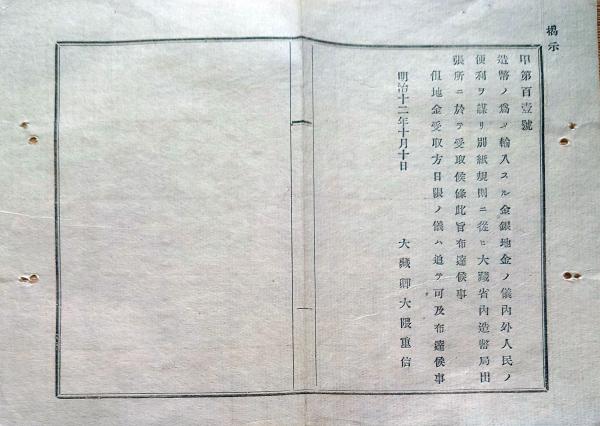 揭示
甲第百壹號
造幣ノ爲メ輸入スル金銀地金ノ儀內外人民ノ
便利ヲ謀リ別紙規則ニ從ヒ大藏省內造幣局出
張所ニ於テ受取候條此旨布達候事
但地金受取方日限ノ儀ハ追テ可及布達候事
明治十二年十月十日
大藏卿大隈重信